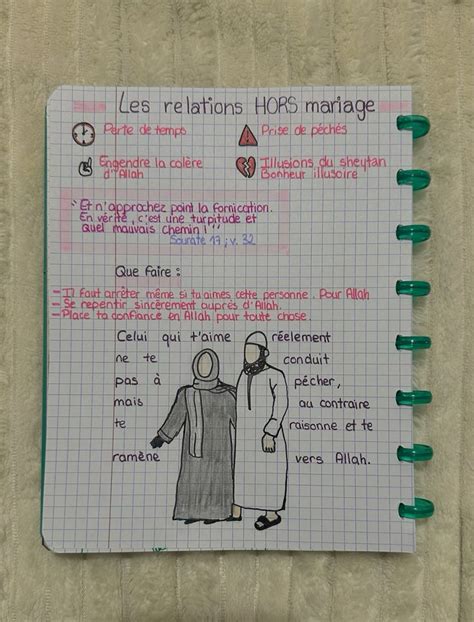 Les relations HORS mariage
Perte de temps
Prise de péchés
Engendre la colère
d'Allah
Illusions du sheytan
Bonheur illusoire
"Et n'approchez point la fornication.
En vérité, c'est une turpitude et
quel mauvais chemin !"
Sourate 17 ; v. 32
Que faire :
- Il faut arrêter même si tu aimes cette personne. Pour Allah
- Se repentir sincèrement auprès d'Allah.
- Place ta confiance en Allah pour toute chose.
Celui qui t'aime réelement
ne te conduit
pas à pécher,
mais au contraire
te raisonne et te
ramène vers Allah.